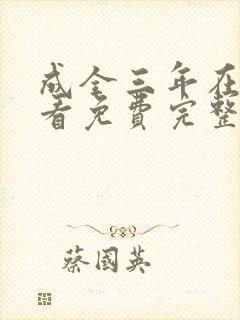 成全三年在
看免费完整
蔡國英